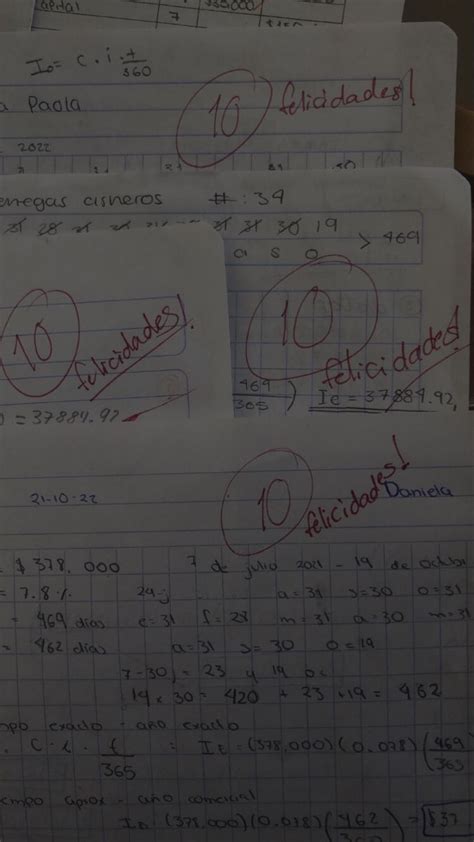 7
Io = C · i · t/360
10 felicidades!
a Paola
2022
enegas cisneros #:34
31 30 19
a s o > 469
10
felicidades!
10
felicidades!
469/365) Ie = 37884.92,
= 37884.92
21-10-22
10 felicidades!
Daniela
$ 378,000 7 de julio 2021 - 19 de octub
= 7.8% a=31 s=30 o=31
= 469 dias e=31 f=28 m=31 a=30 m=31
= 462 dias a=31 s=30 o=19
7-30 = 23 y 19 o
14 x 30 = 420 + 23 + 19 = 462
mpo exacto - año exacto
C · i · t/365 = Ie = (378,000)(0.078)(469/365
empo aprox - año comercial
(378,000)(0.078)(462/360) = $37